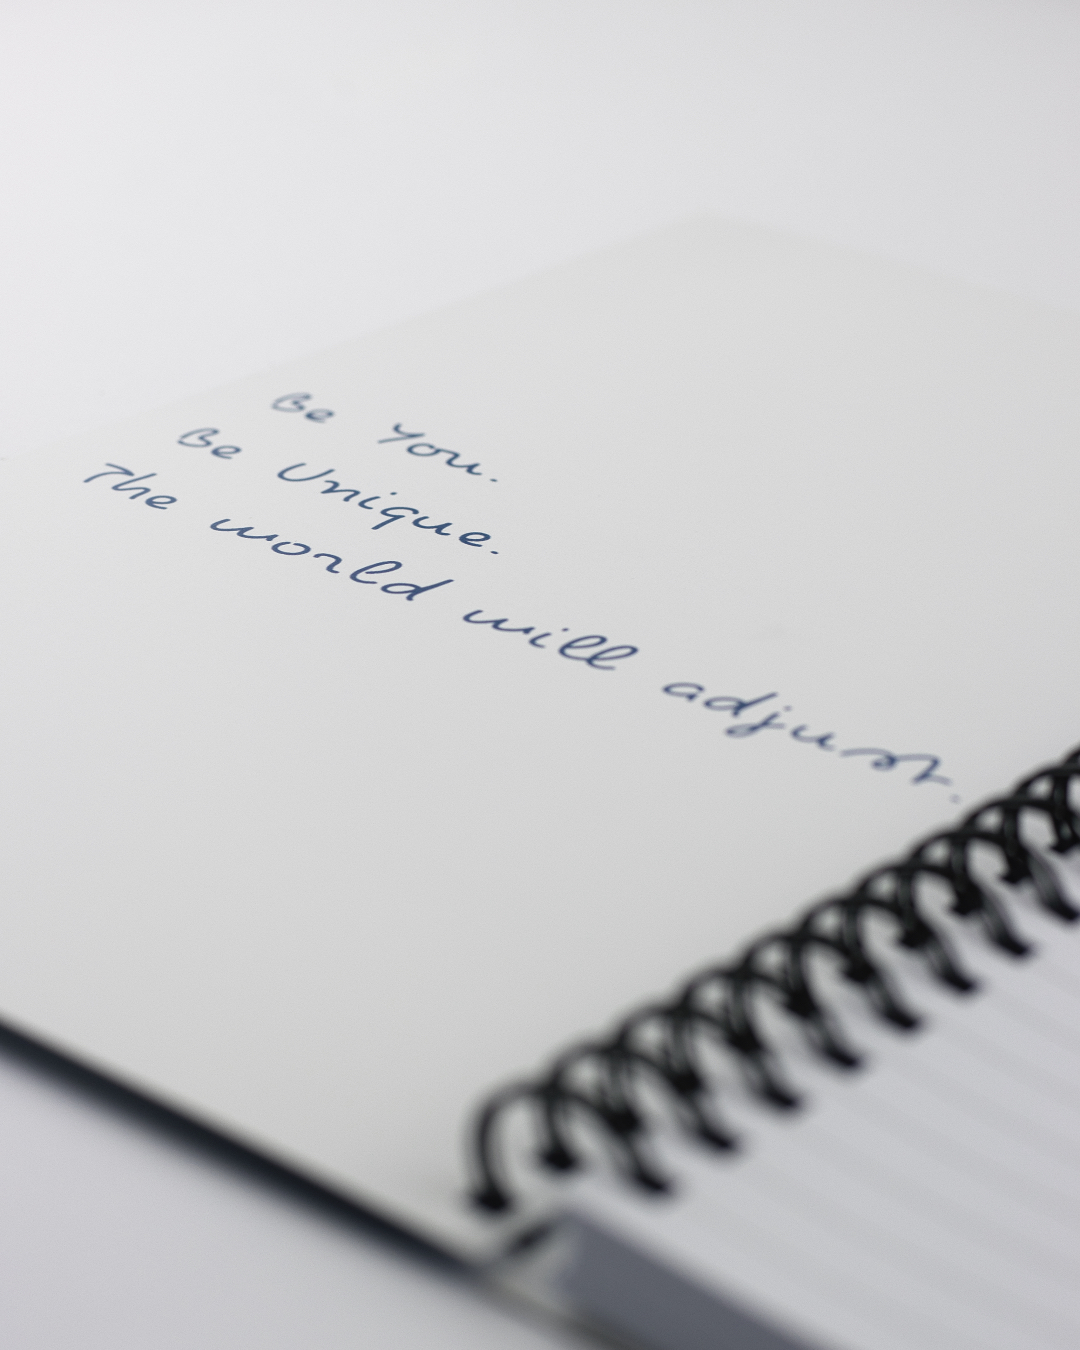 Be You.
Be Unique.
The world will adjust.